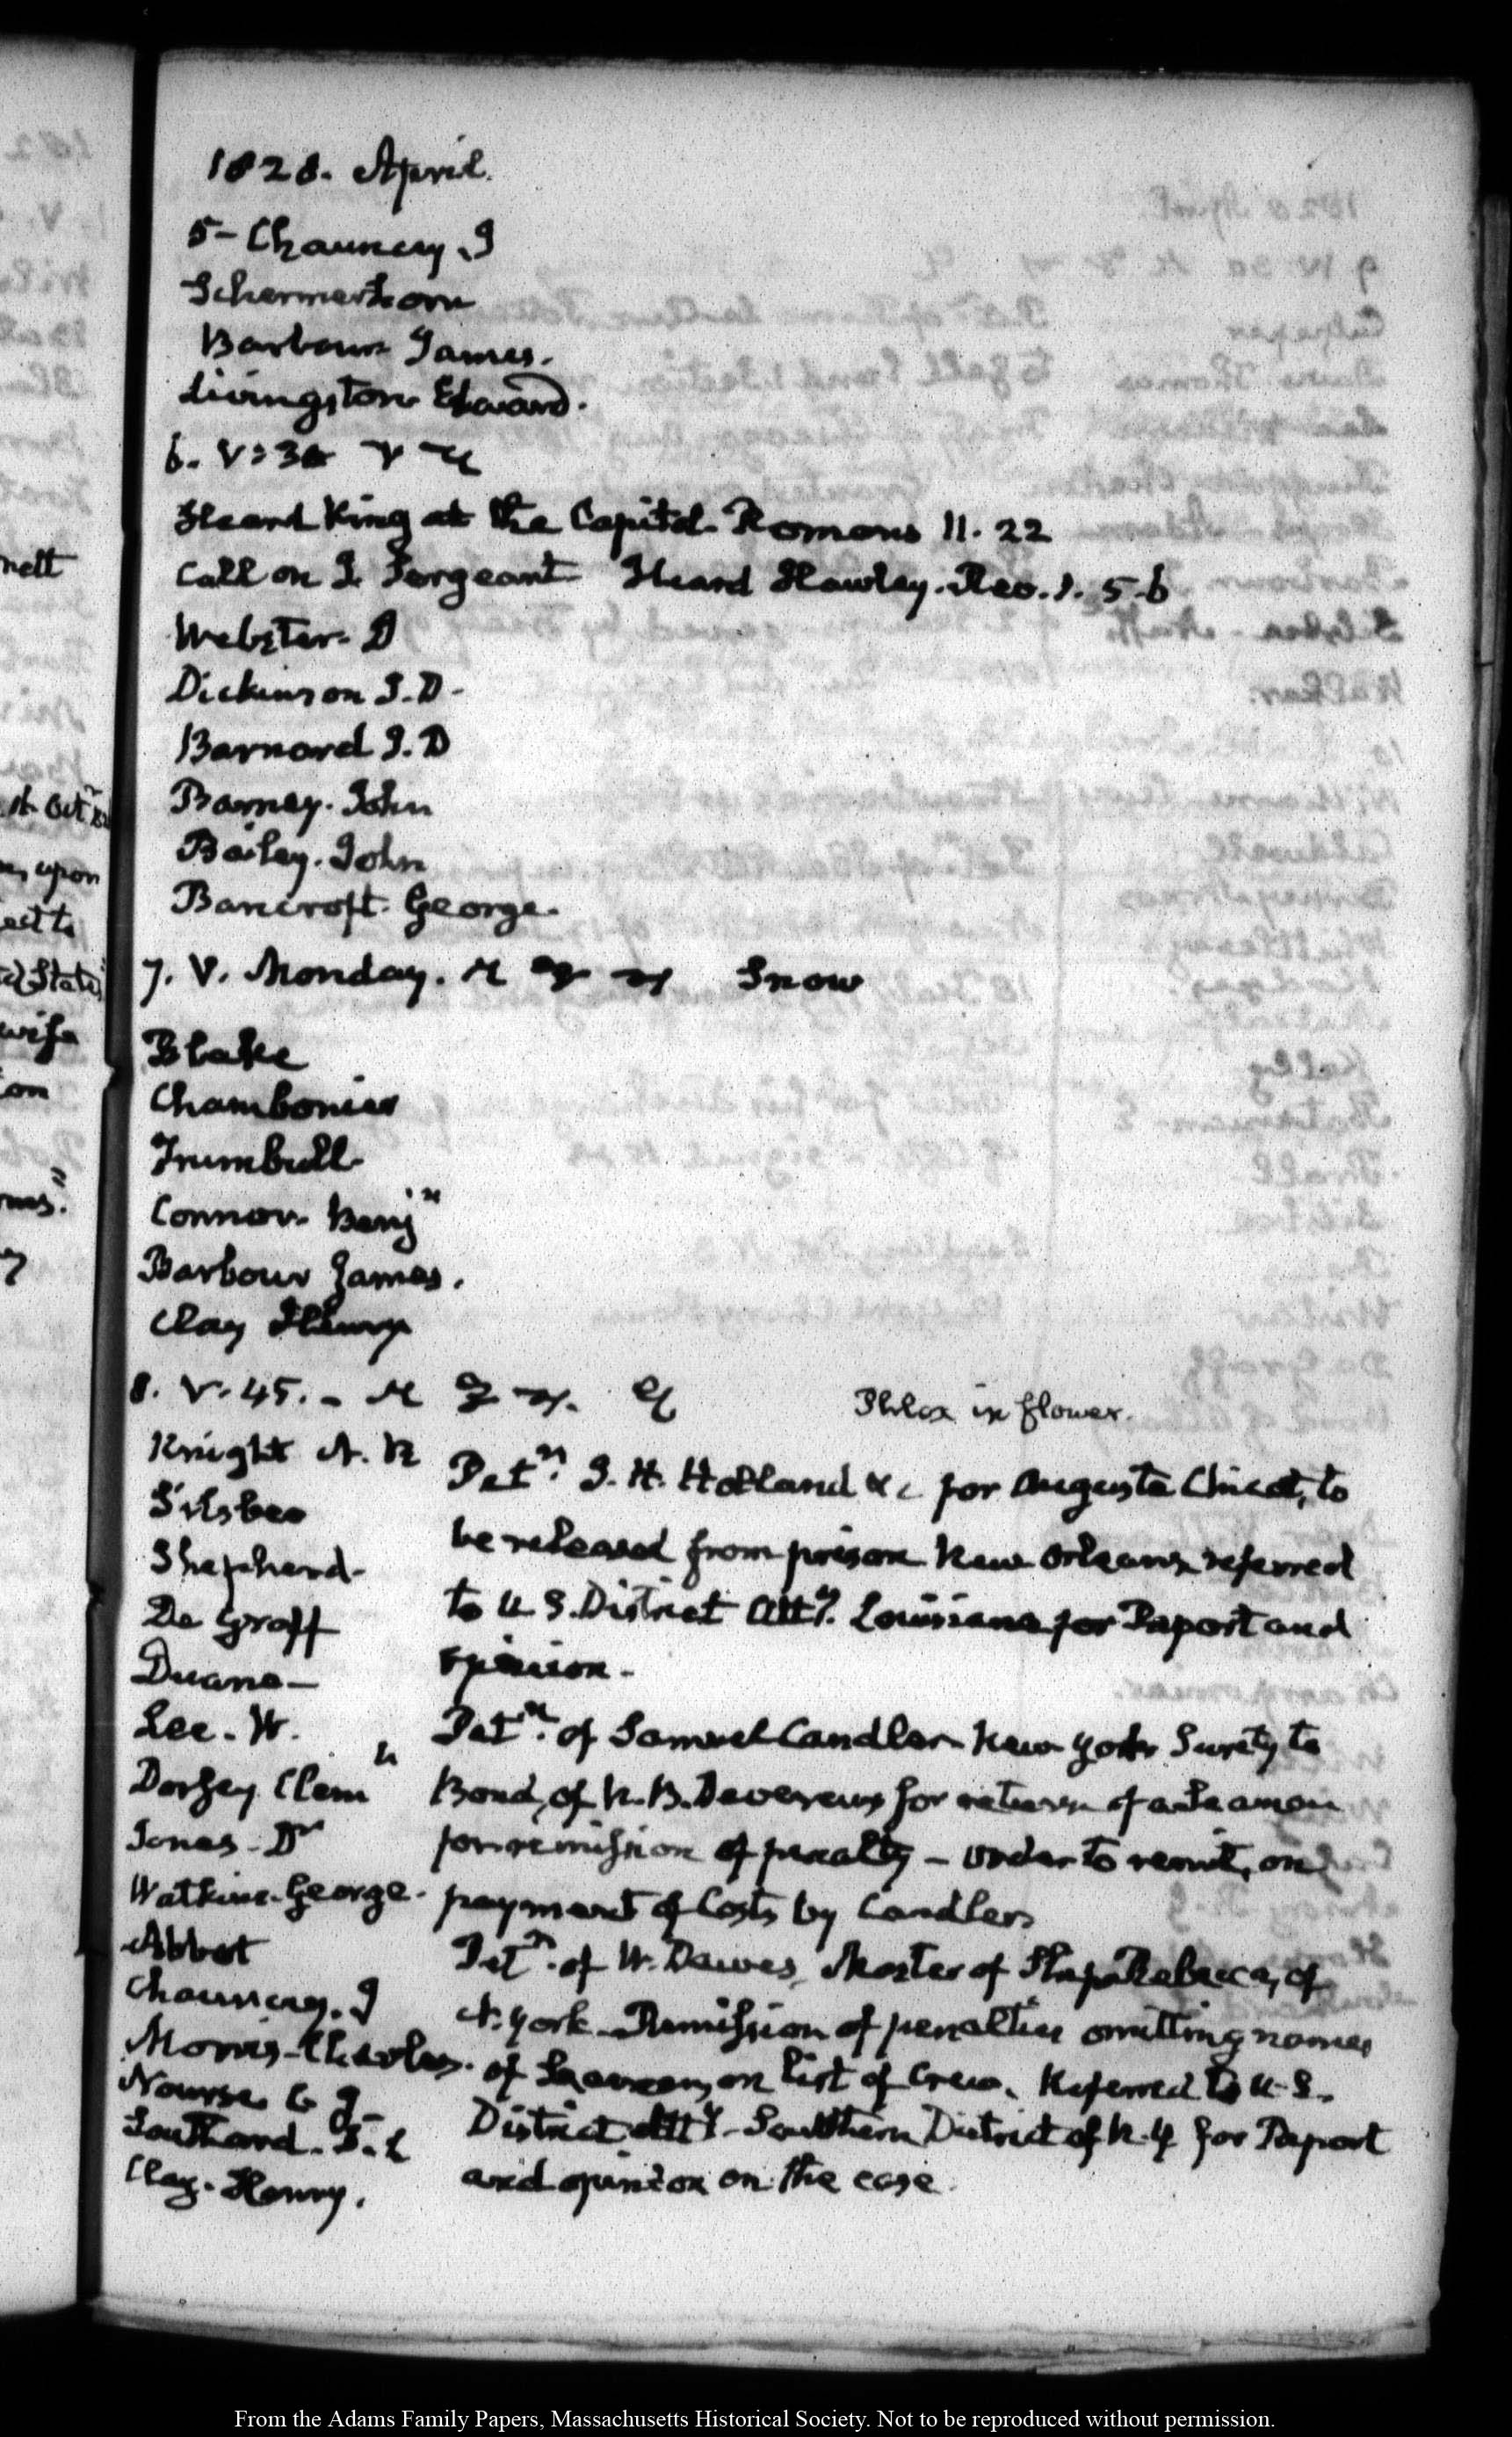 1828. April.
5- Chauncey. I
Schermerhorn
Barbour James.
Livingston Edward.
6. V:30
Heard King at the Capitol. Romans 11. 22
Call on J. Sergeant Heard Hawley. Rev. 1. 5.6
Webster. D
Dickinson J. D.
Barnard J. D
Barney. John
Bailey. John
Bancroft. George.
7. V. Monday. Snow
Blake
Chambonier
Trumbull
Connor. Benj.n
Barbour James.
Clay Henry
8. V. 45. Phlox in flower.
Knight N. R
Silsbee
Shepherd.
De Graff
Duane-
Lee. W.
Dorsey Clem.t
Jones. Dr
Watkins. George.
Abbot
Chauncey. I
Morris. Charles.
Nourse C. J.
Southard. S. L
Clay. Henry.
Petn. J. H. Holland &c for Auguste Chicot, to
be released from prison New Orleans referred
to U. S. District Atty. Louisiana for Report and
opinion.
Petn. of Samuel Candler New York Surety to
Bond of N. B. Devereux for return of a Seaman
for remission of penalty – order to remit, on
payment of Costs by Candler
Petn. of W. Dawes, Master of Ship Rebecca, of
N. York. Remission of penalties omitting names
of Seamen, on list of Crew. Referred to U. S.
District Atty. Southern District of N. Y for Report
and opinion on the case.
nett
st Oct
upon
ect to
States
wife
ion
From the Adams Family Papers, Massachusetts Historical Society. Not to be reproduced without permission.